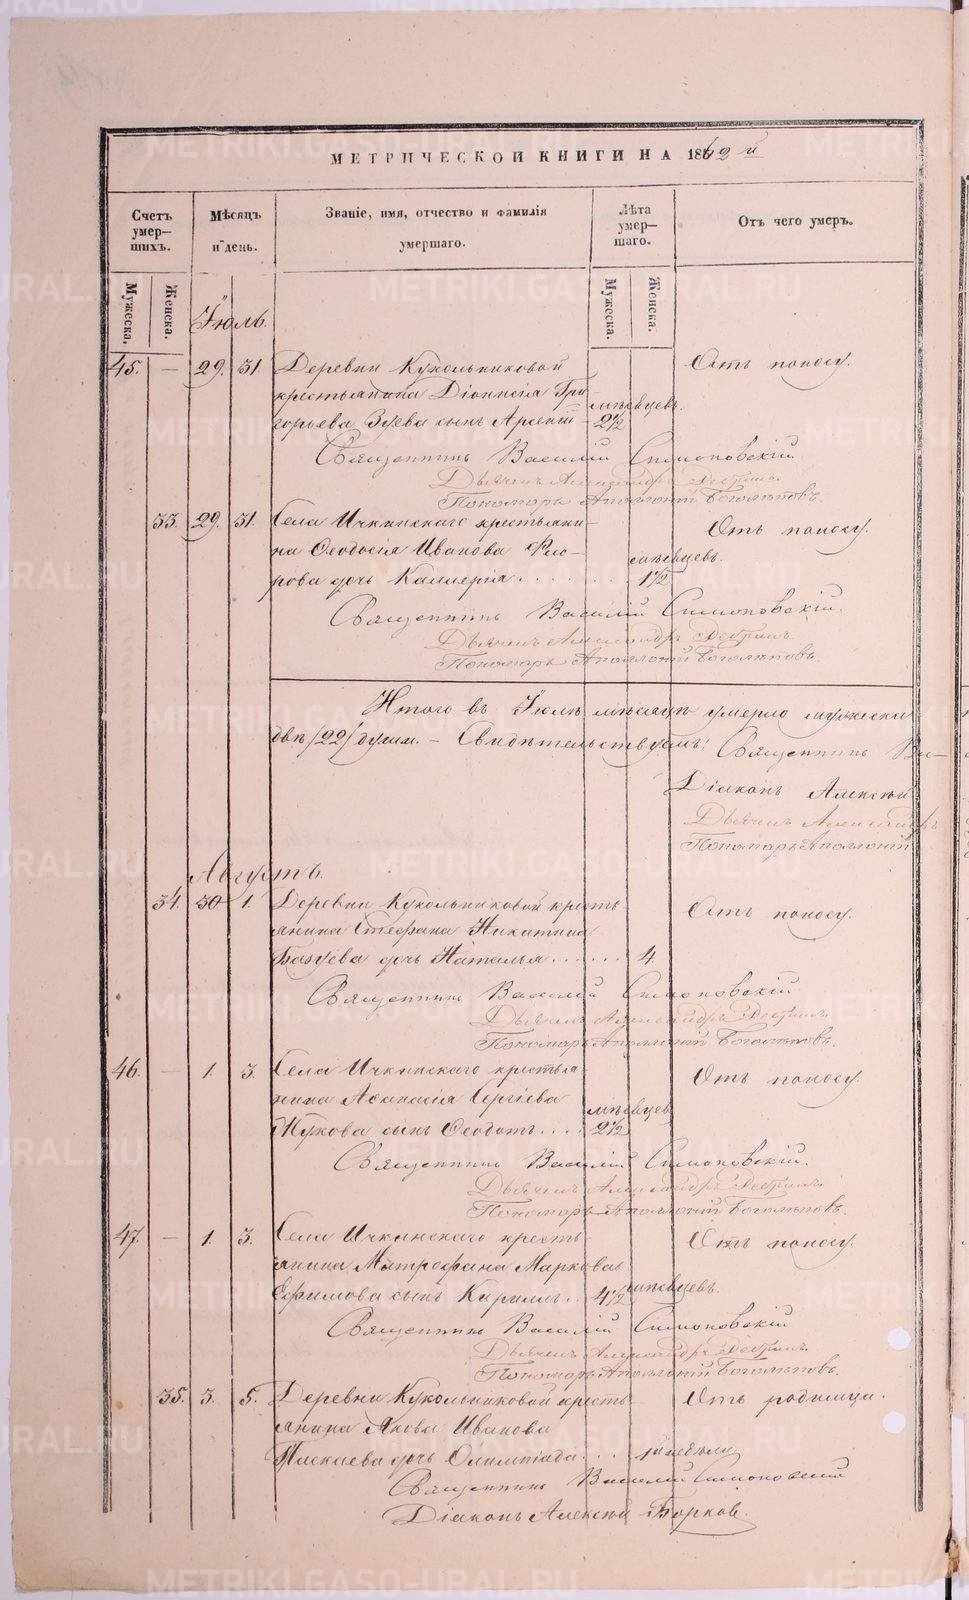 МЕТРИЧЕСКОЙ КНИГИ НА 1862 й
Счетъ умер—шихъ.
Мѣсяцъ и день.
Званіе, имя, отчество и фамилія умершаго.
Лѣта умер—шаго.
Отъ чего умеръ.
Мужеска.
Женска.
Мужеска.
Женска.
Іюль.
45. — 29. 31. Деревни Кукольниковой Отъ поносу.
крестьянина Діонисія Гри- мѣсяцевъ.
горьева Зуева сынъ Арсеній — 2½
Священникъ Василій Симоновскій
Дьячекъ Александръ
Пономарь Аполлоній Боголѣповъ.
33. 29. 31. Села Ичкинскаго крестьяни- Отъ поносу.
на Ѳеодосія Иванова Фло- мѣсяцевъ.
рова дочь Калерія . . . . . . . 1½
Священникъ Василій Симоновскій.
Дьячекъ Александръ
Пономарь Аполлоній Боголѣповъ.
Итого въ Іюлѣ мѣсяцѣ умерло мужеска
двѣ /22/ души. — Свидѣтельствуемъ: Священникъ Ва—
Діаконъ Алексѣй
Дьячекъ Александръ
Пономарь Аполлоній
Августъ.
34. 30 1. Деревни Кукольниковой кресть- Отъ поносу.
янина Стефана Никитина
дочь Наталья . . . . . . 4
Священникъ Василій Симоновскій
Дьячекъ Александръ
Пономарь Аполлоній Боголѣповъ.
46. — 1. 3. Села Ичкинскаго крестья- Отъ поносу.
нина Аѳанасія Сергіева мѣсяцев
Жукова сынъ Ѳеодотъ . . . . 2½
Священникъ Василій Симоновскій.
Дьячекъ Александръ
Пономарь Аполлоній Боголѣповъ.
47. — 1. 3. Села Ичкинскаго кресть- Отъ поносу.
янина Митрофана Маркова
Ефимова сынъ Кириллъ . . 4½ мѣсяцевъ.
Священникъ Василій Симоновскій
Дьячекъ Александръ
Пономарь Аполлоній Боголѣповъ.
35. 3. 5. Деревни Кукольниковой кресть- Отъ родимца.
янина Якова Иванова
дочь Олимпіада . . . недѣли
Священникъ Василій Симоновскій
Діаконъ Алексѣй Борков.
METRIKI.GASO-URAL.RU